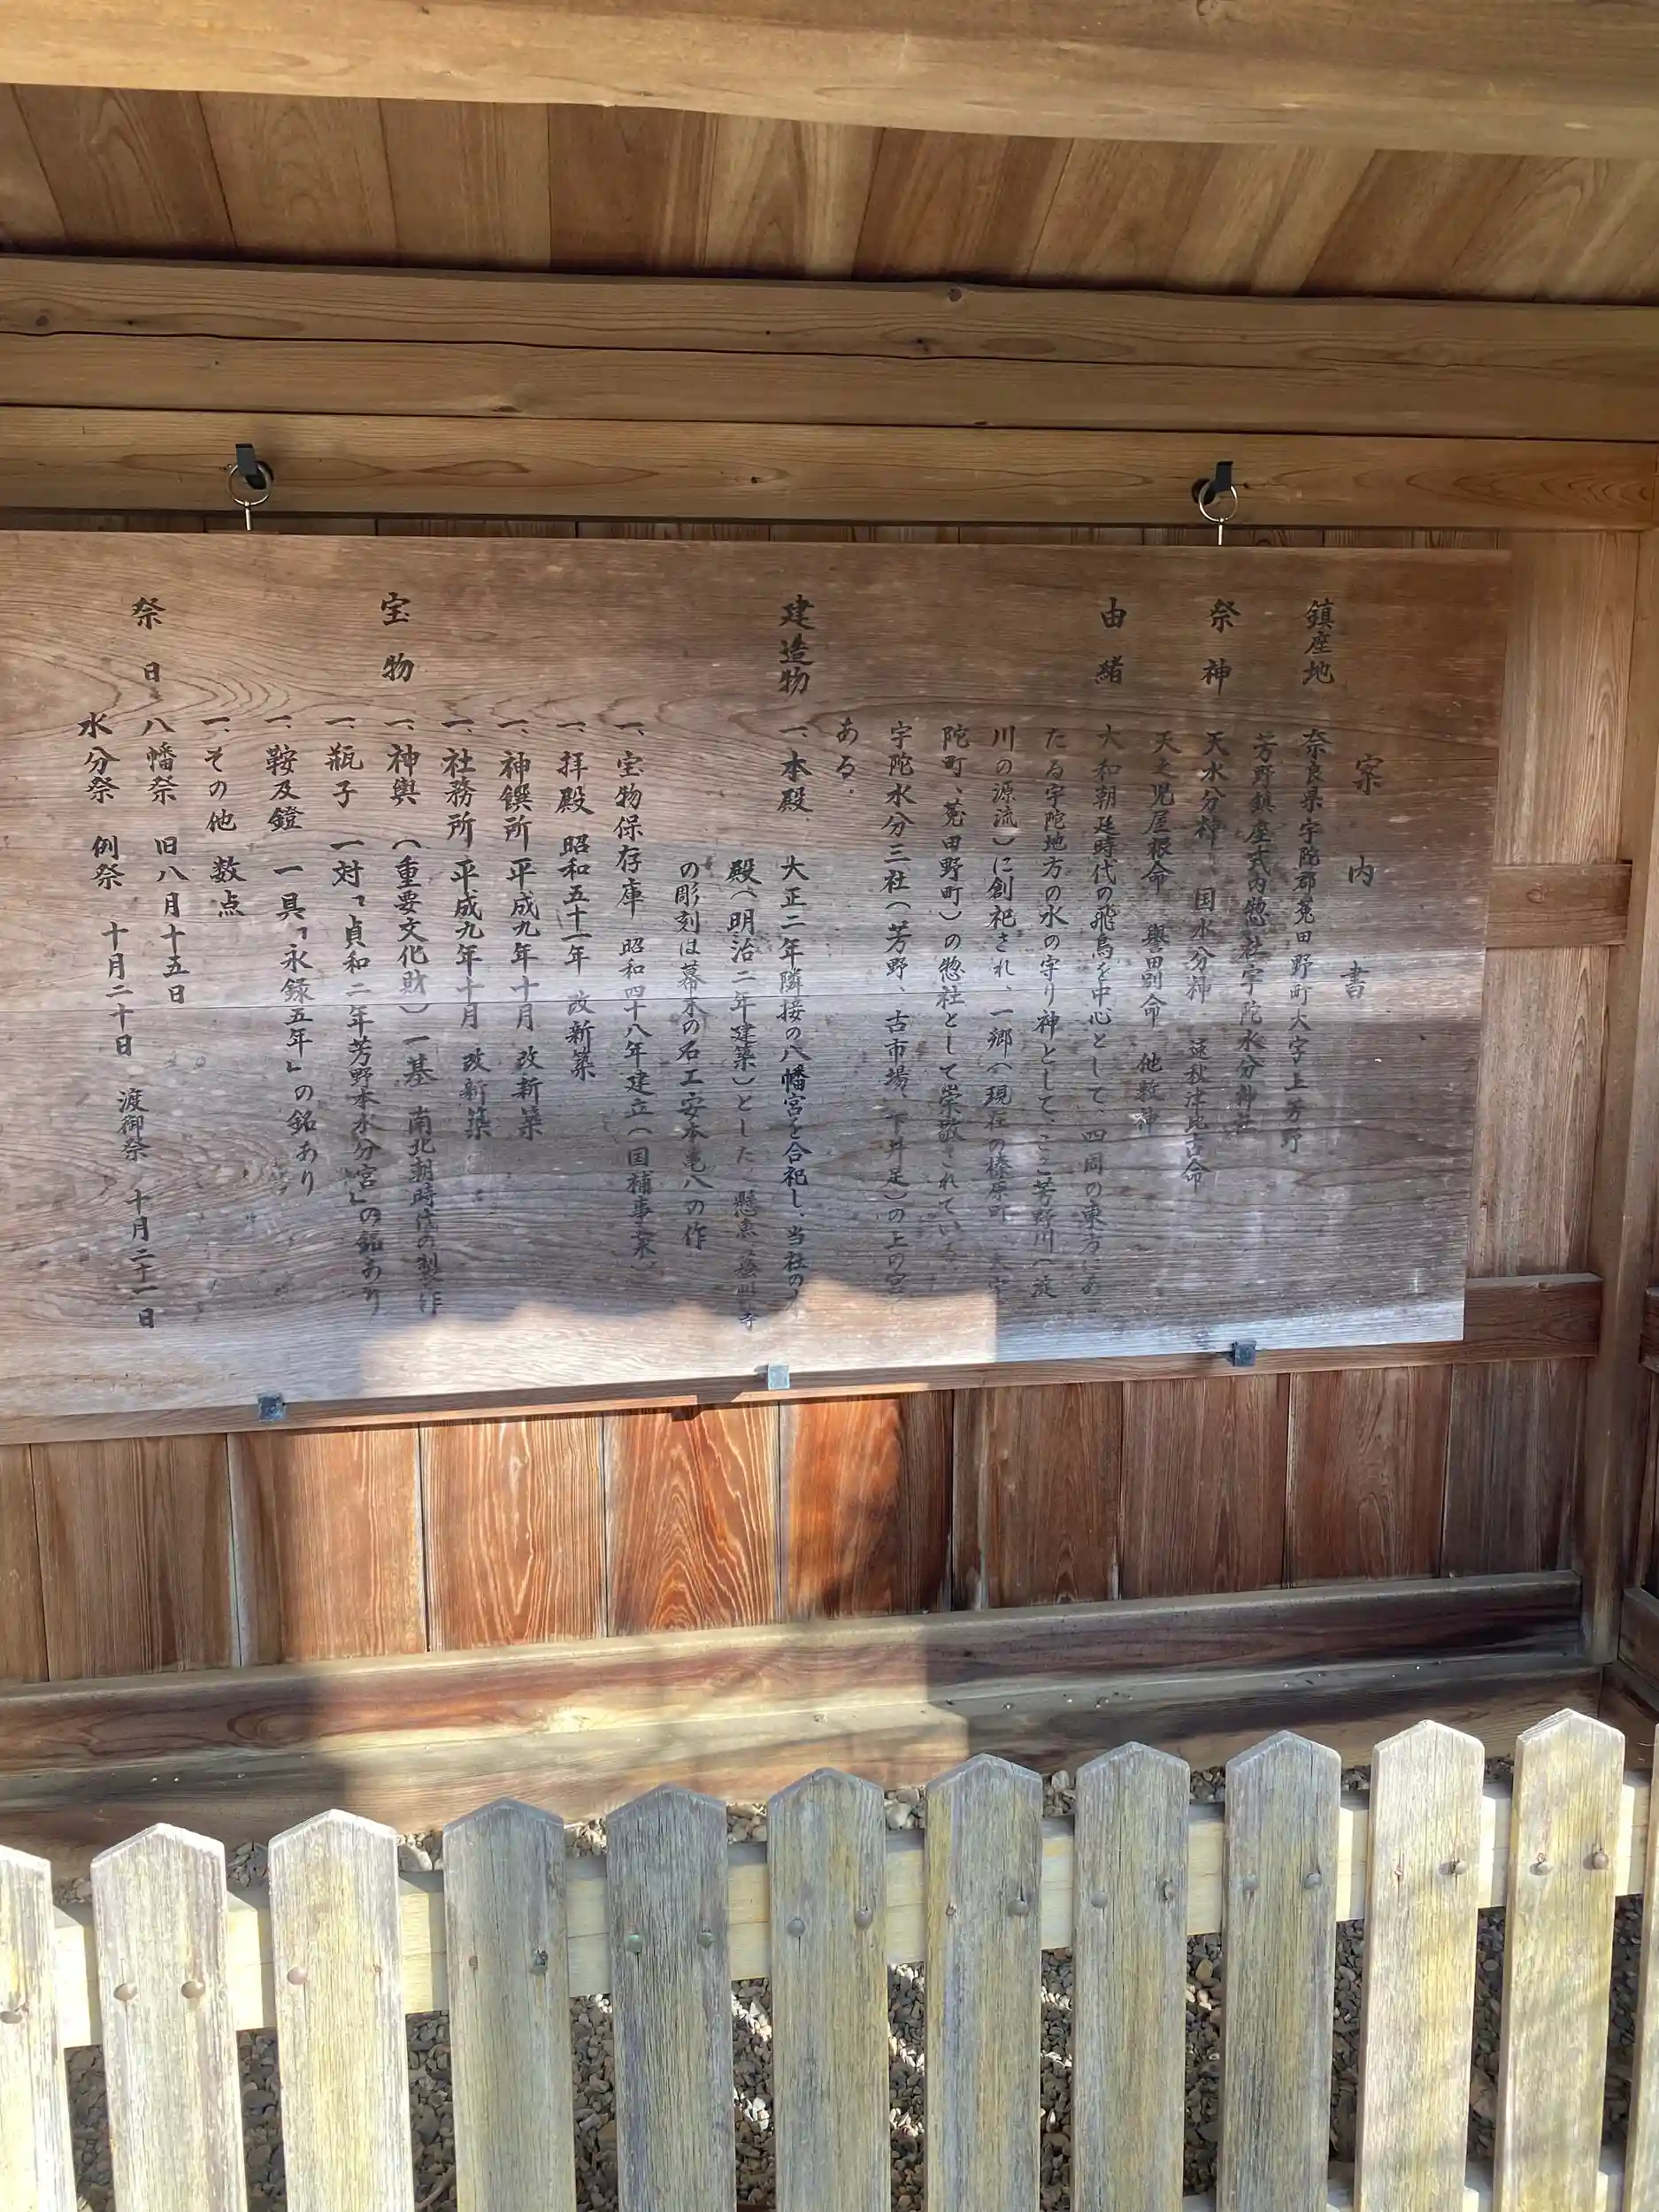 案内書
鎮座地 奈良県宇陀郡菟田野町大字上芳野
芳野鎮座式内惣社宇陀水分神社
祭神 天水分神 国水分神 速秋津比古命
天之児屋根命 誉田別命 他数神
由緒 大和朝廷時代の飛鳥を中心として、四周の東方にあ
たる宇陀地方の水の守り神として、ここ芳野川の
川の源流)に創祀され、一郷(現在の榛原町、大宇
陀町、菟田野町)の惣社として崇敬されている。
宇陀水分三社(芳野、古市場、下井足)の上の宮
ある。
建造物 一、本殿、大正二年隣接の八幡宮を合祀し、当社の
殿(明治二年建築)とした 懸魚
の彫刻は幕末の名工安本亀八の作
一、宝物保存庫 昭和四十八年建立(国補事業)
一、拝殿 昭和五十一年 改新築
一、神饌所 平成九年十月 改新築
一、社務所 平成九年十月 改新築
宝物 一、神輿(重要文化財)一基 南北朝時代の製作
一、瓶子 一対「貞和二年芳野本水分宮」の銘あり
一、鞍及鐙 一具「永録五年」の銘あり
一、その他 数点
祭日 八幡祭 旧八月十五日
水分祭 例祭 十月二十日 渡御祭 十月二十一日